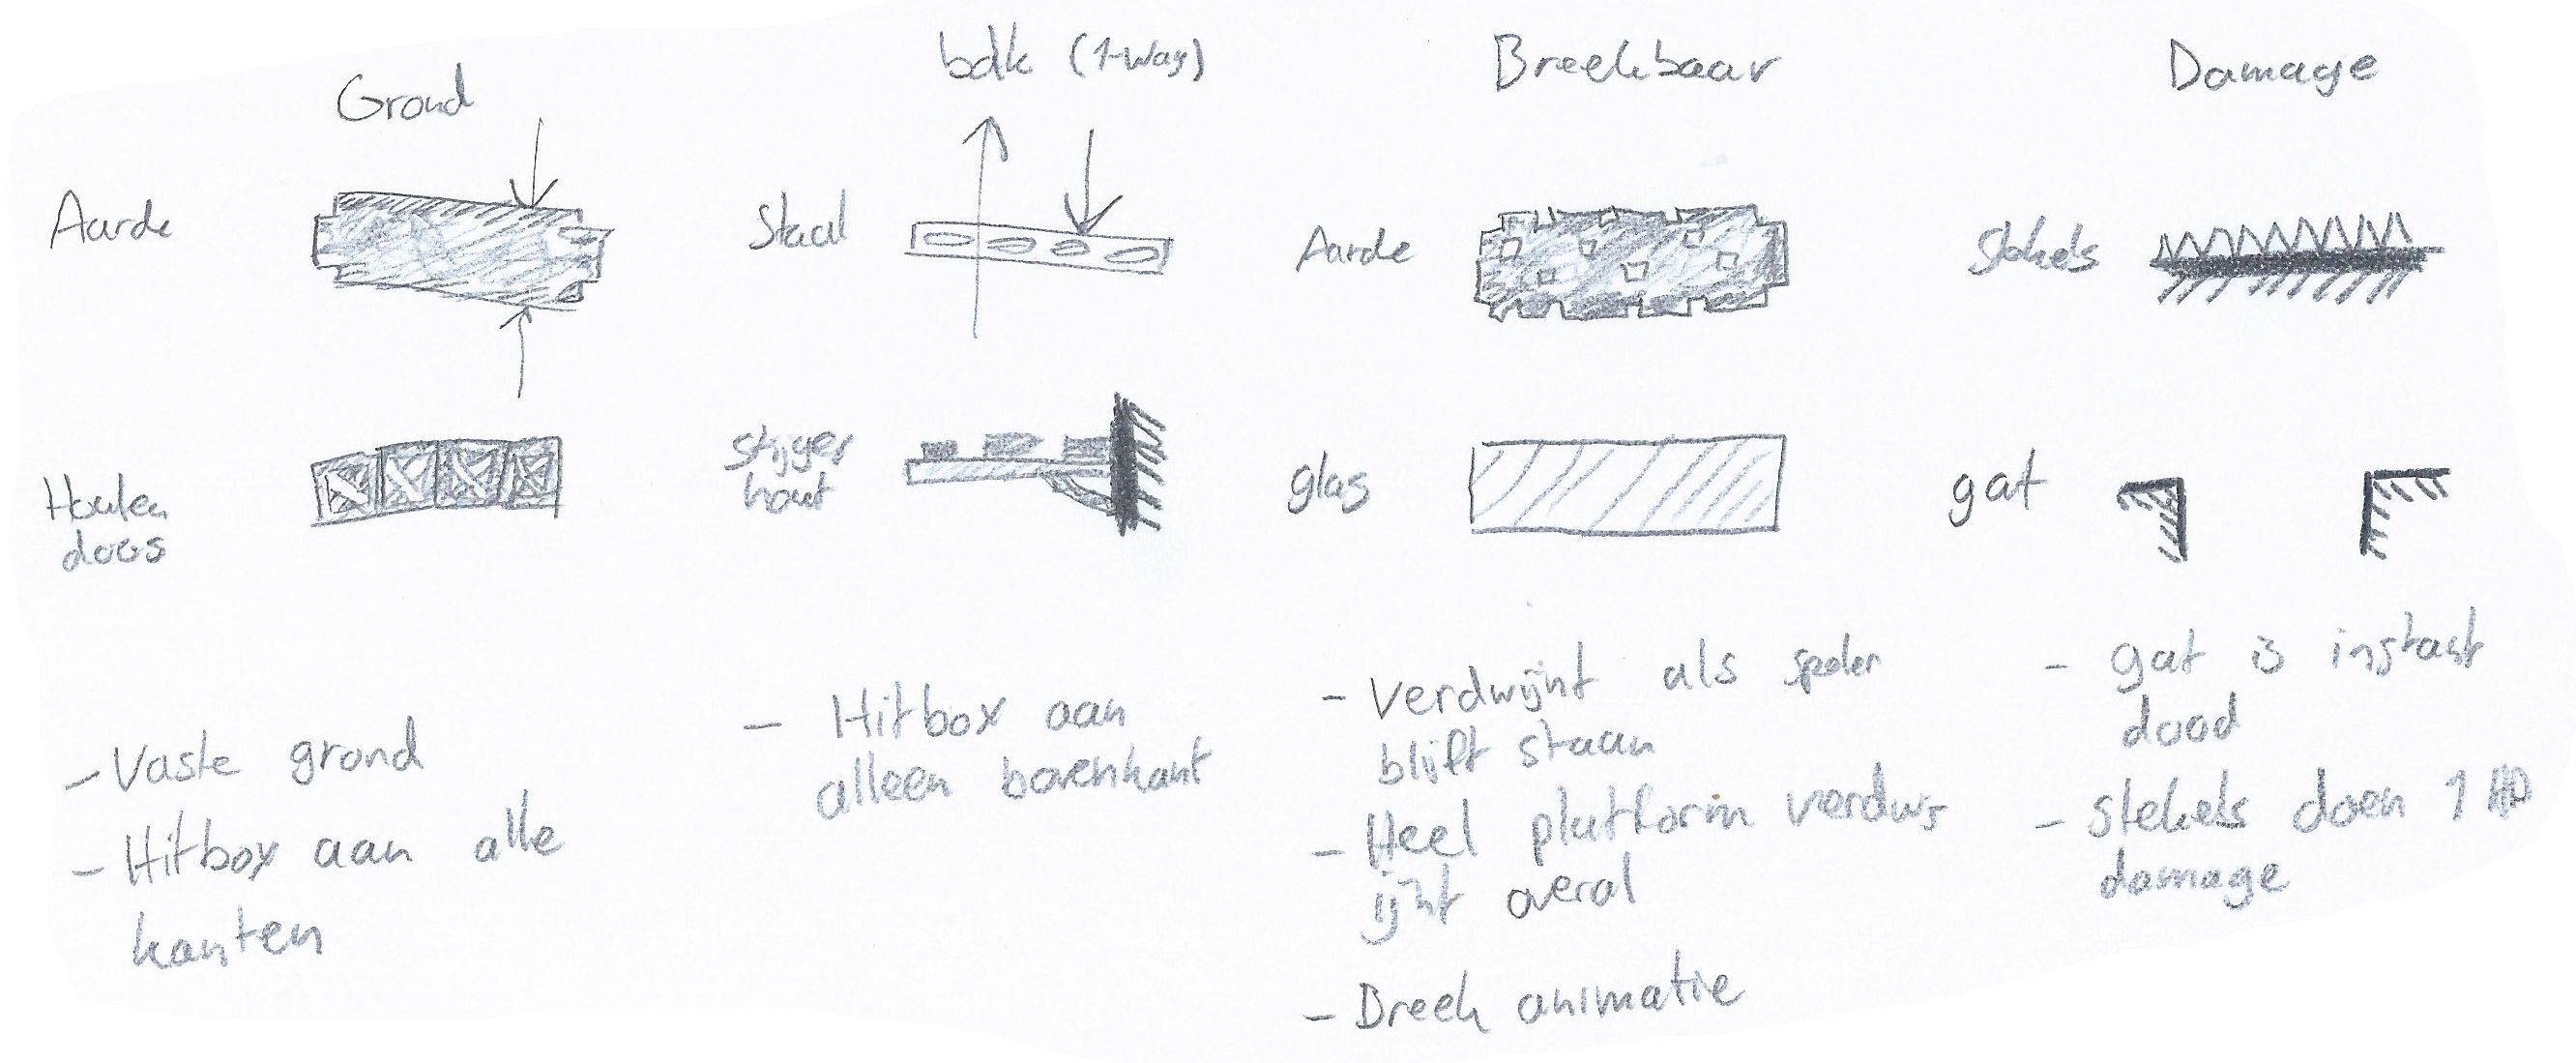 Grond
Aarde
Houten
doos
- Vaste grond
- Hitbox aan alle
kanten
balk (1-way)
Staal
Stijger
hout
- Hitbox aan
alleen bovenkant
Breekbaar
Aarde
glas
- Verdwijnt als speler
blijft staan
- Heel platform verdw
ijnt overal
- Breek animatie
Damage
Stekels
gat
- gat is instant
dood
- Stekels doen 1 HP
damage